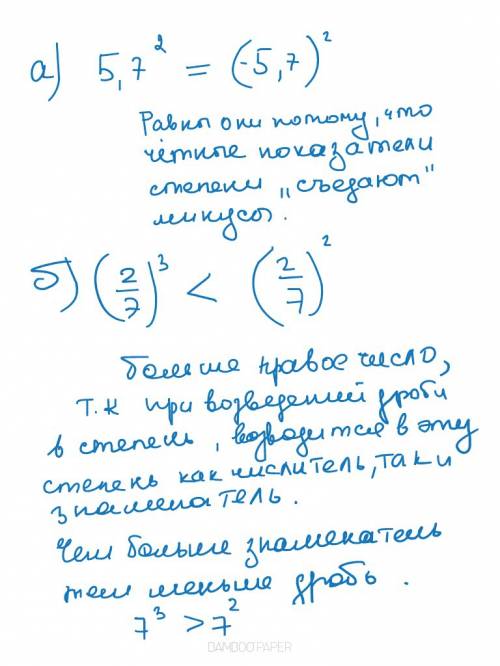 а) 5,7² = (-5,7)²
Равны они потому, что
чётные показатели
степени „съедают"
минусы.
б) (2/7)³ < (2/7)²
больше правое число,
т.к при возведений дроби
в степень, возводится в эту
степень как числитель, так и
знаменатель.
Чем больше знаменатель
тем меньше дробь.
7³ > 7²
BAMBOOPAPER